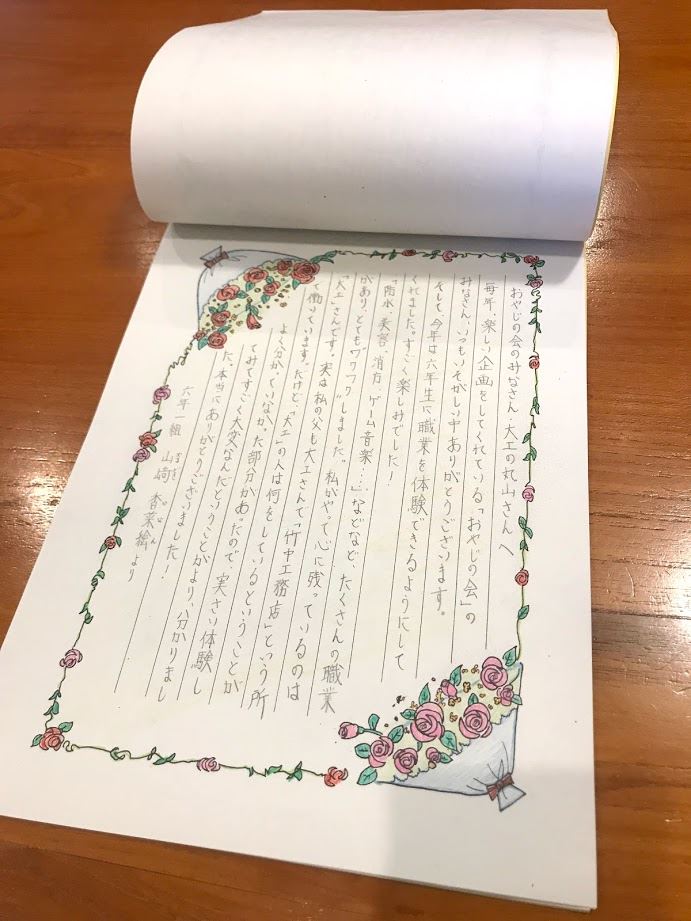 おやじの会のみなさん・大工の丸山さんへ
毎年、楽しい企画をしてくれている「おやじの会」の
みなさん、いつもいそがしい中ありがとうございます。
そして、今年は六年生に職業を体験できるようにして
くれました。すごく楽しみでした!
「防水、美容、消方、ゲーム音楽…」などなど、たくさんの職業
があり、とてもワクワクしました。私がやって心に残っているのは
「大工」さんです。実は私の父も大工さんで「竹中工務店」という所
で働いています。だけど、「大工」の人は何をしているということが
よく分かっていなかった部分があったので、実さい体験し
てみてすごく大変なんだということがより、分かりまし
た。本当にありがとうございました!
六年一組 山崎 杏菜 より